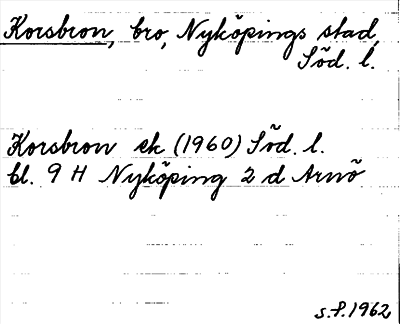 Korsbron, bro, Nyköpings stad,
Söd. l.
Korsbron ek (1960) Söd. l.
bl. 9 H Nyköping 2 d Arnö
s.f. 1962